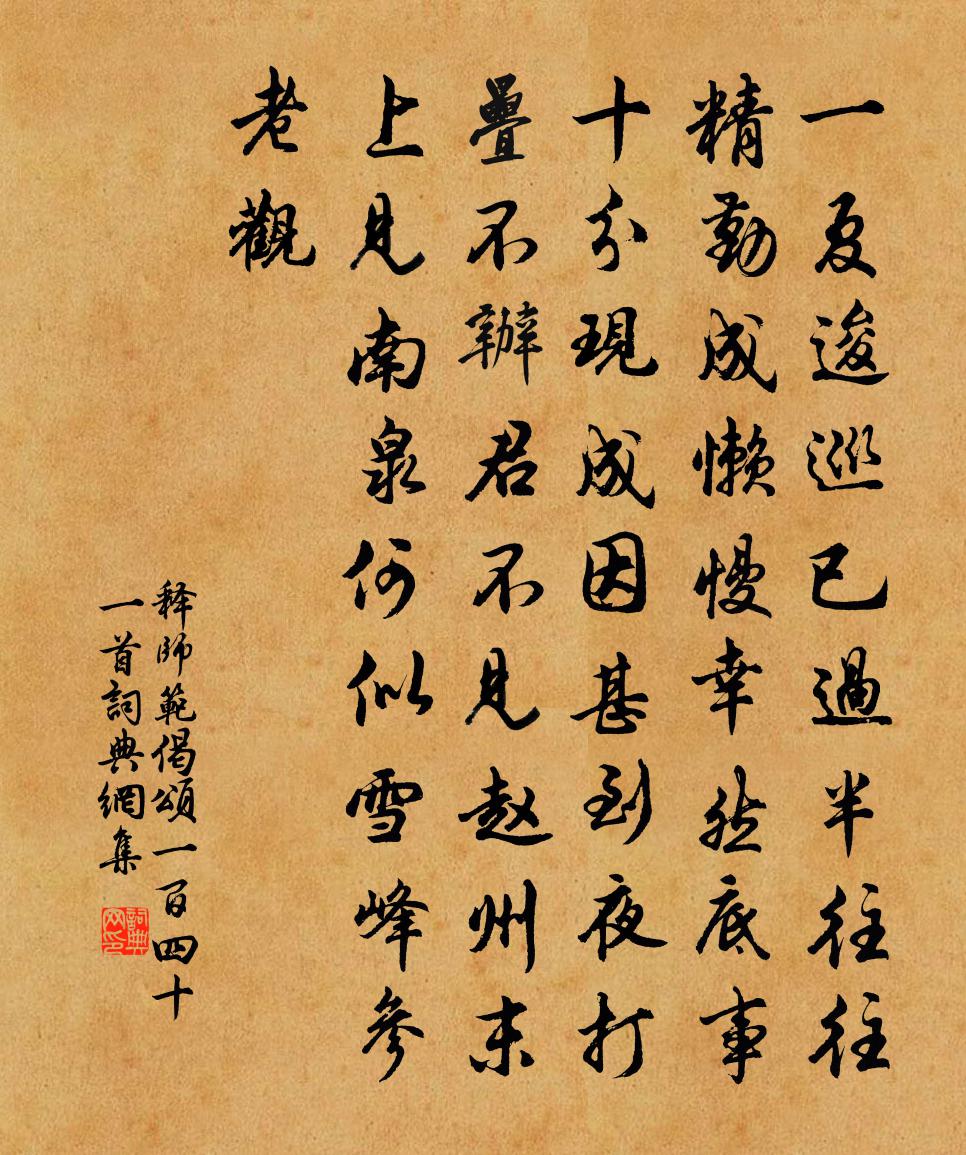 一夏逡巡已過半往往
精勤成懒慢幸然底事
十分現成因甚到夜打
疊不辦君不見赵州未
上見南泉何似雪峰參
老觀
释師範偈頌一百四十
一首詞典網集
詞典网印